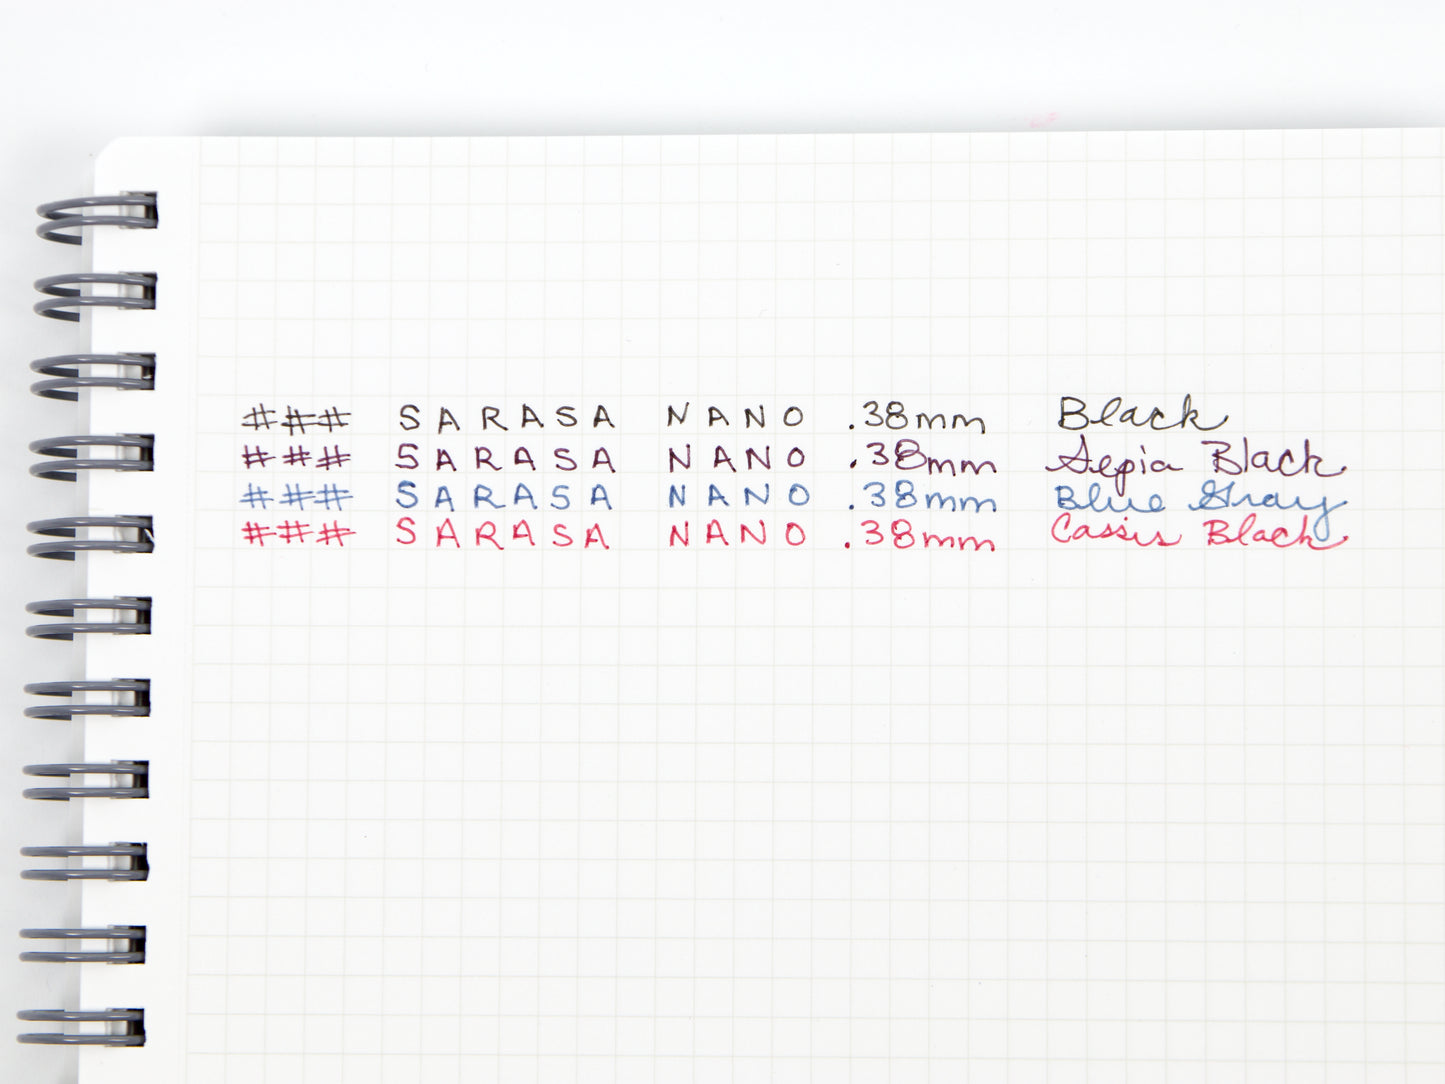 ### SARASA NANO .38mm Black
### SARASA NANO .38mm Sepia Black
### SARASA NANO .38mm Blue Gray
### SARASA NANO .38mm Cassis Black